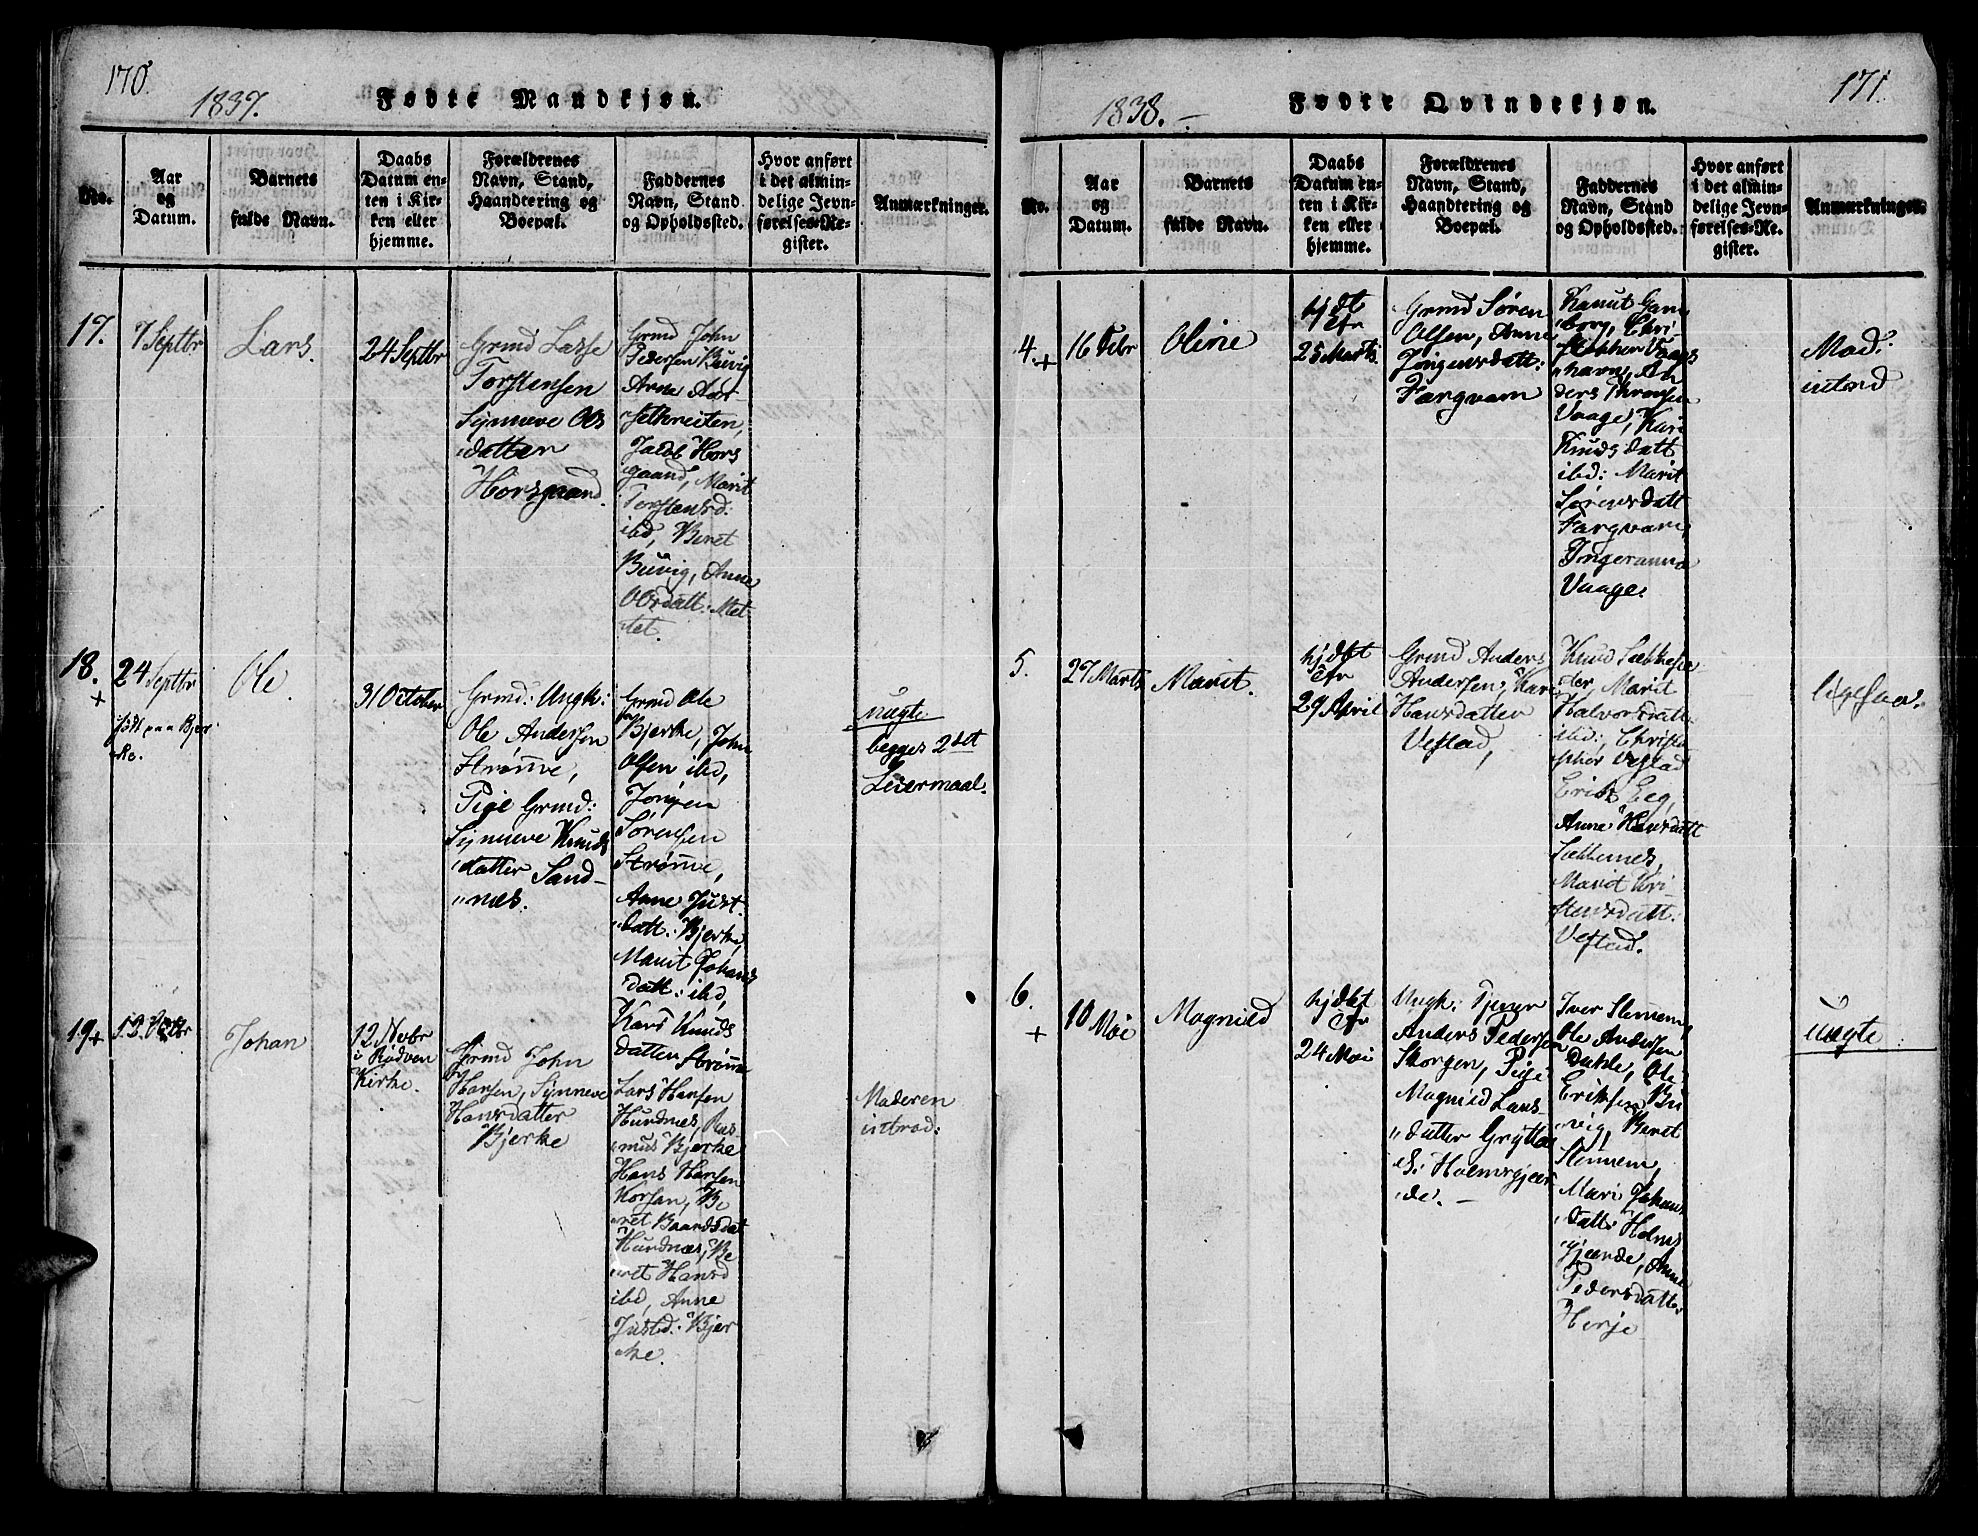 170.
1837.
Fødte Mandkjøn.
No.
Aar
og
Datum.
Barnets
fulde Navn.
Daabs
Datum en-
ten i Kir-
ken eller
hjemme.
Forældrenes
Navn, Stand,
Haandtering og
Boepæl.
Faddernes
Navn, Stand
og Opholdssted.
Hvor anført
i det almin-
delige Jevn-
førelses-Re-
gister.
Anmærkninger.
17.
7 Septbr
Lars.
24 Septbr
Grmd Lasse
Torstensen
Synneve Ols
datter
Horsgaard.
Grmd John
Pedersen Buvig
Arne Aar
sethreiten,
Jacob Hors
gaard, Marit
Torstensd:
ibd, Beret
Buvig, Anne
Olsdatt: Met
tet.
18.
+
24 Septbr
født paa Bjer
ke.
Ole.
31 October
Grmd: Ungk:
Ole Andersen
Strømme,
Pige Grmd:
Synneve Knuds
datter Sand-
nes.
Grmd Ole
Bjerke, John
Olsen ibd,
Jørgen
Sørensen
Strømme,
Anne Just
datt: Bjerke,
Marit Johans
datt: ibd,
Kari Knuds
datter Strømme
uægte
begges 2det
Leiermaal.
19+
12 Octbr
Johan
12 Novbr
i Rødven
Kirke.
Grmd John
Hansen, Synneve
Hansdatter
Bjerke
Lars Hansen
Hurdnes, Ras
mus Bjerke
Hans Hansen
Korsan, Be
ret Baardsdat
Hurdnæs, Be
ret Hansd
ibd, Anne
Justd: Bjer
ke.
Moderen
introd:
171.
1838.-
Fødte Qvindekjøn.
No.
Aar
og
Datum.
Barnets
fulde Navn.
Daabs
Datum en-
ten i Kir-
ken eller
hjemme.
Forældrenes
Navn, Stand,
Haandtering og
Boepæl.
Faddernes
Navn, Stand
og Opholdssted.
Hvor anført
i det almin-
delige Jevn-
førelses-Re-
gister.
Anmærkninger.
4.
+
16 Febr
Oline
hjdbt
Cfr
25 Marts
Grmd Søren
Olsen, Anne
Jørgensdatt:
Fargvarn
Knut
Vaage, Kari
Knudsdatt
ibd: Marit
Sørensdatt
Fargvarn,
Ingeranna
Vaage.
Mod:
introd
5.
27 Marts
Marit.
hjdbt
Cfr
29 April
Grmd Anders
Andersen, Kari
Hansdatter
Vestad,
Marit
Halvorsdatt:
ibd:, Christo
pher Vestad
Erik Eeg,
Anne Hansdatt
Sækkenes,
Marit Kri
stensdatt:
Vestad.
ligesaa.
6.
+
10 Mai
Magnild
hjdbt
Cfr
24 Mai
Ungk: Tjener
Anders Pedersen
Skorgen, Pige
Magnild Lars-
datter Grytte
Holmsgjær
de. -
Iver Stennem,
Ole Andersen
Dahle, Ole
Eriksen Bu
vig, Beret
Stennem,
Mari Johans
datt: Holms
gjærde, Anne
Pedersdatter
Herje
uægte